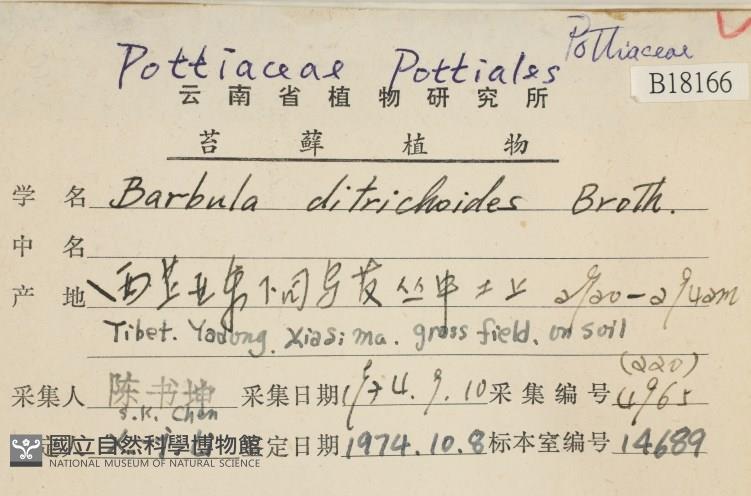 Pottiaceae
Pottiaceae Pottiales
B18166
云南省植物研究所
苔藓植物
学名 Barbula ditrichoides Broth.
中名
产地 西藏亚东下司马 草丛中土上 2920-2940m
Tibet. Yadong. Xiasima. grass field, on soil
采集人 陈书坤 采集日期 1974.9.10 采集编号 (220) 4965
S.K. Chen
定日期 1974.10.8 标本室编号 14689
國立自然科學博物館
NATIONAL MUSEUM OF NATURAL SCIENCE